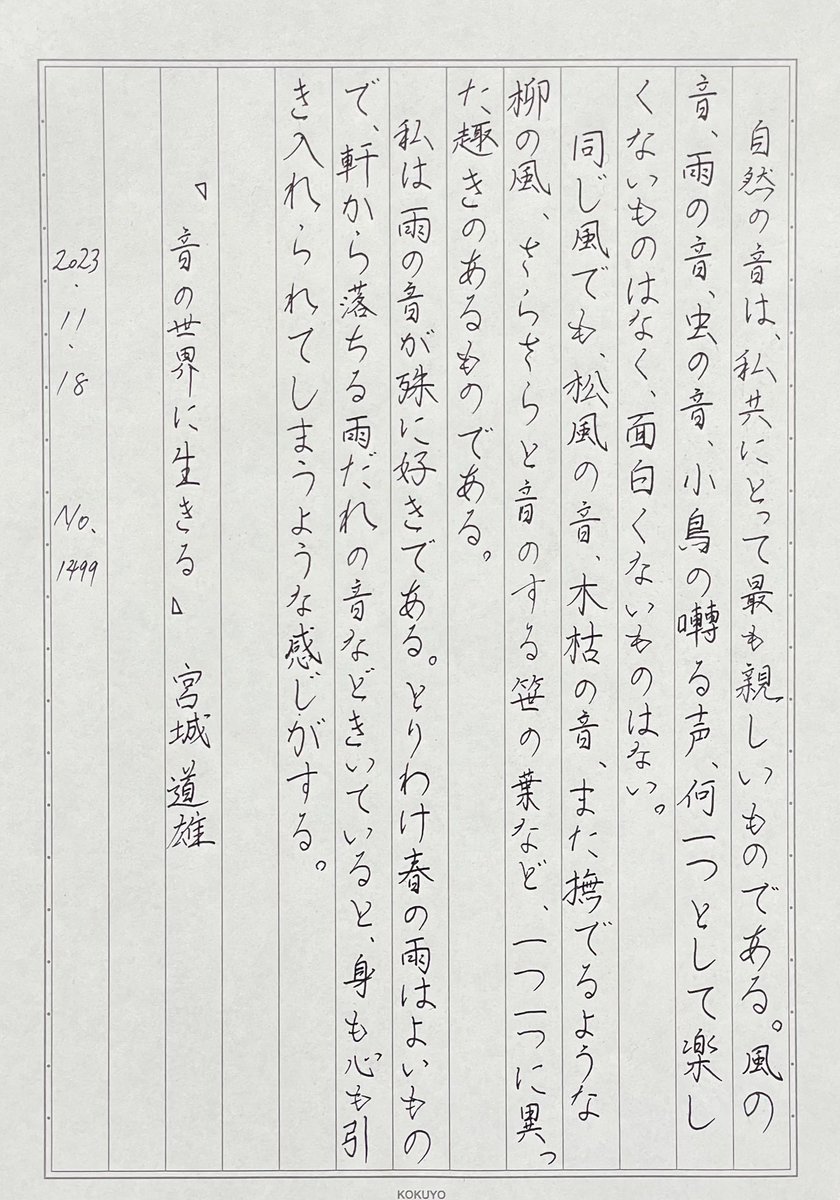 自然の音は、私共にとって最も親しいものである。風の
音、雨の音、虫の音、小鳥の囀る声、何一つとして楽し
くないものはなく、面白くないものはない。
同じ風でも、松風の音、木枯の音、また撫でるような
柳の風、さらさらと音のする笹の葉など、一つ一つに異っ
た趣きのあるものである。
私は雨の音が殊に好きである。とりわけ春の雨はよいもの
で、軒から落ちる雨だれの音などきいていると、身も心も引
き入れられてしまうような感じがする。
『音の世界に生きる』 宮城道雄
2023.11.18 No.1499
KOKUYO